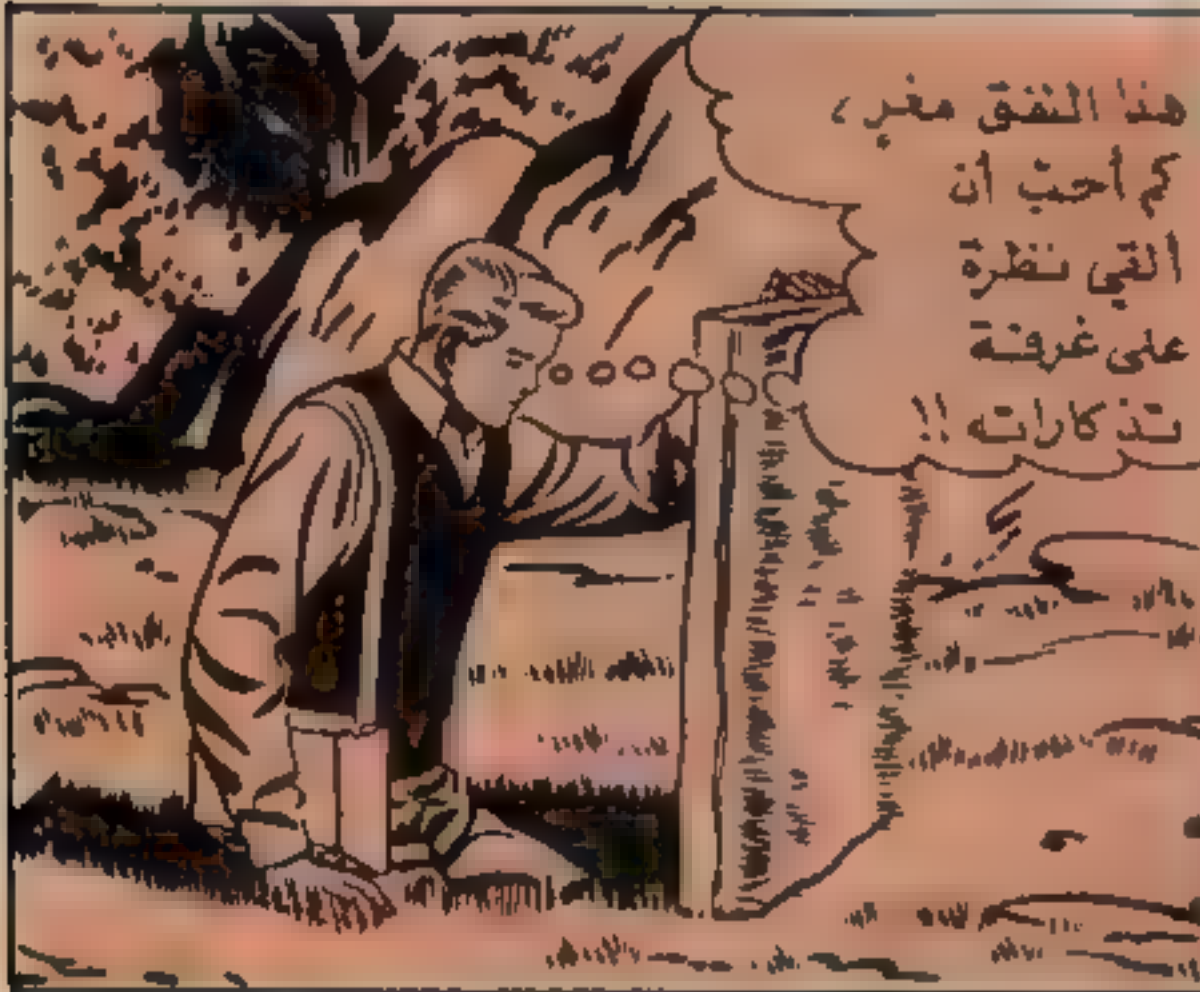 هذا النفق مغرٍ ،
كم أحبّ أن
ألقي نظرة
على غرفة
تذكاراته !!